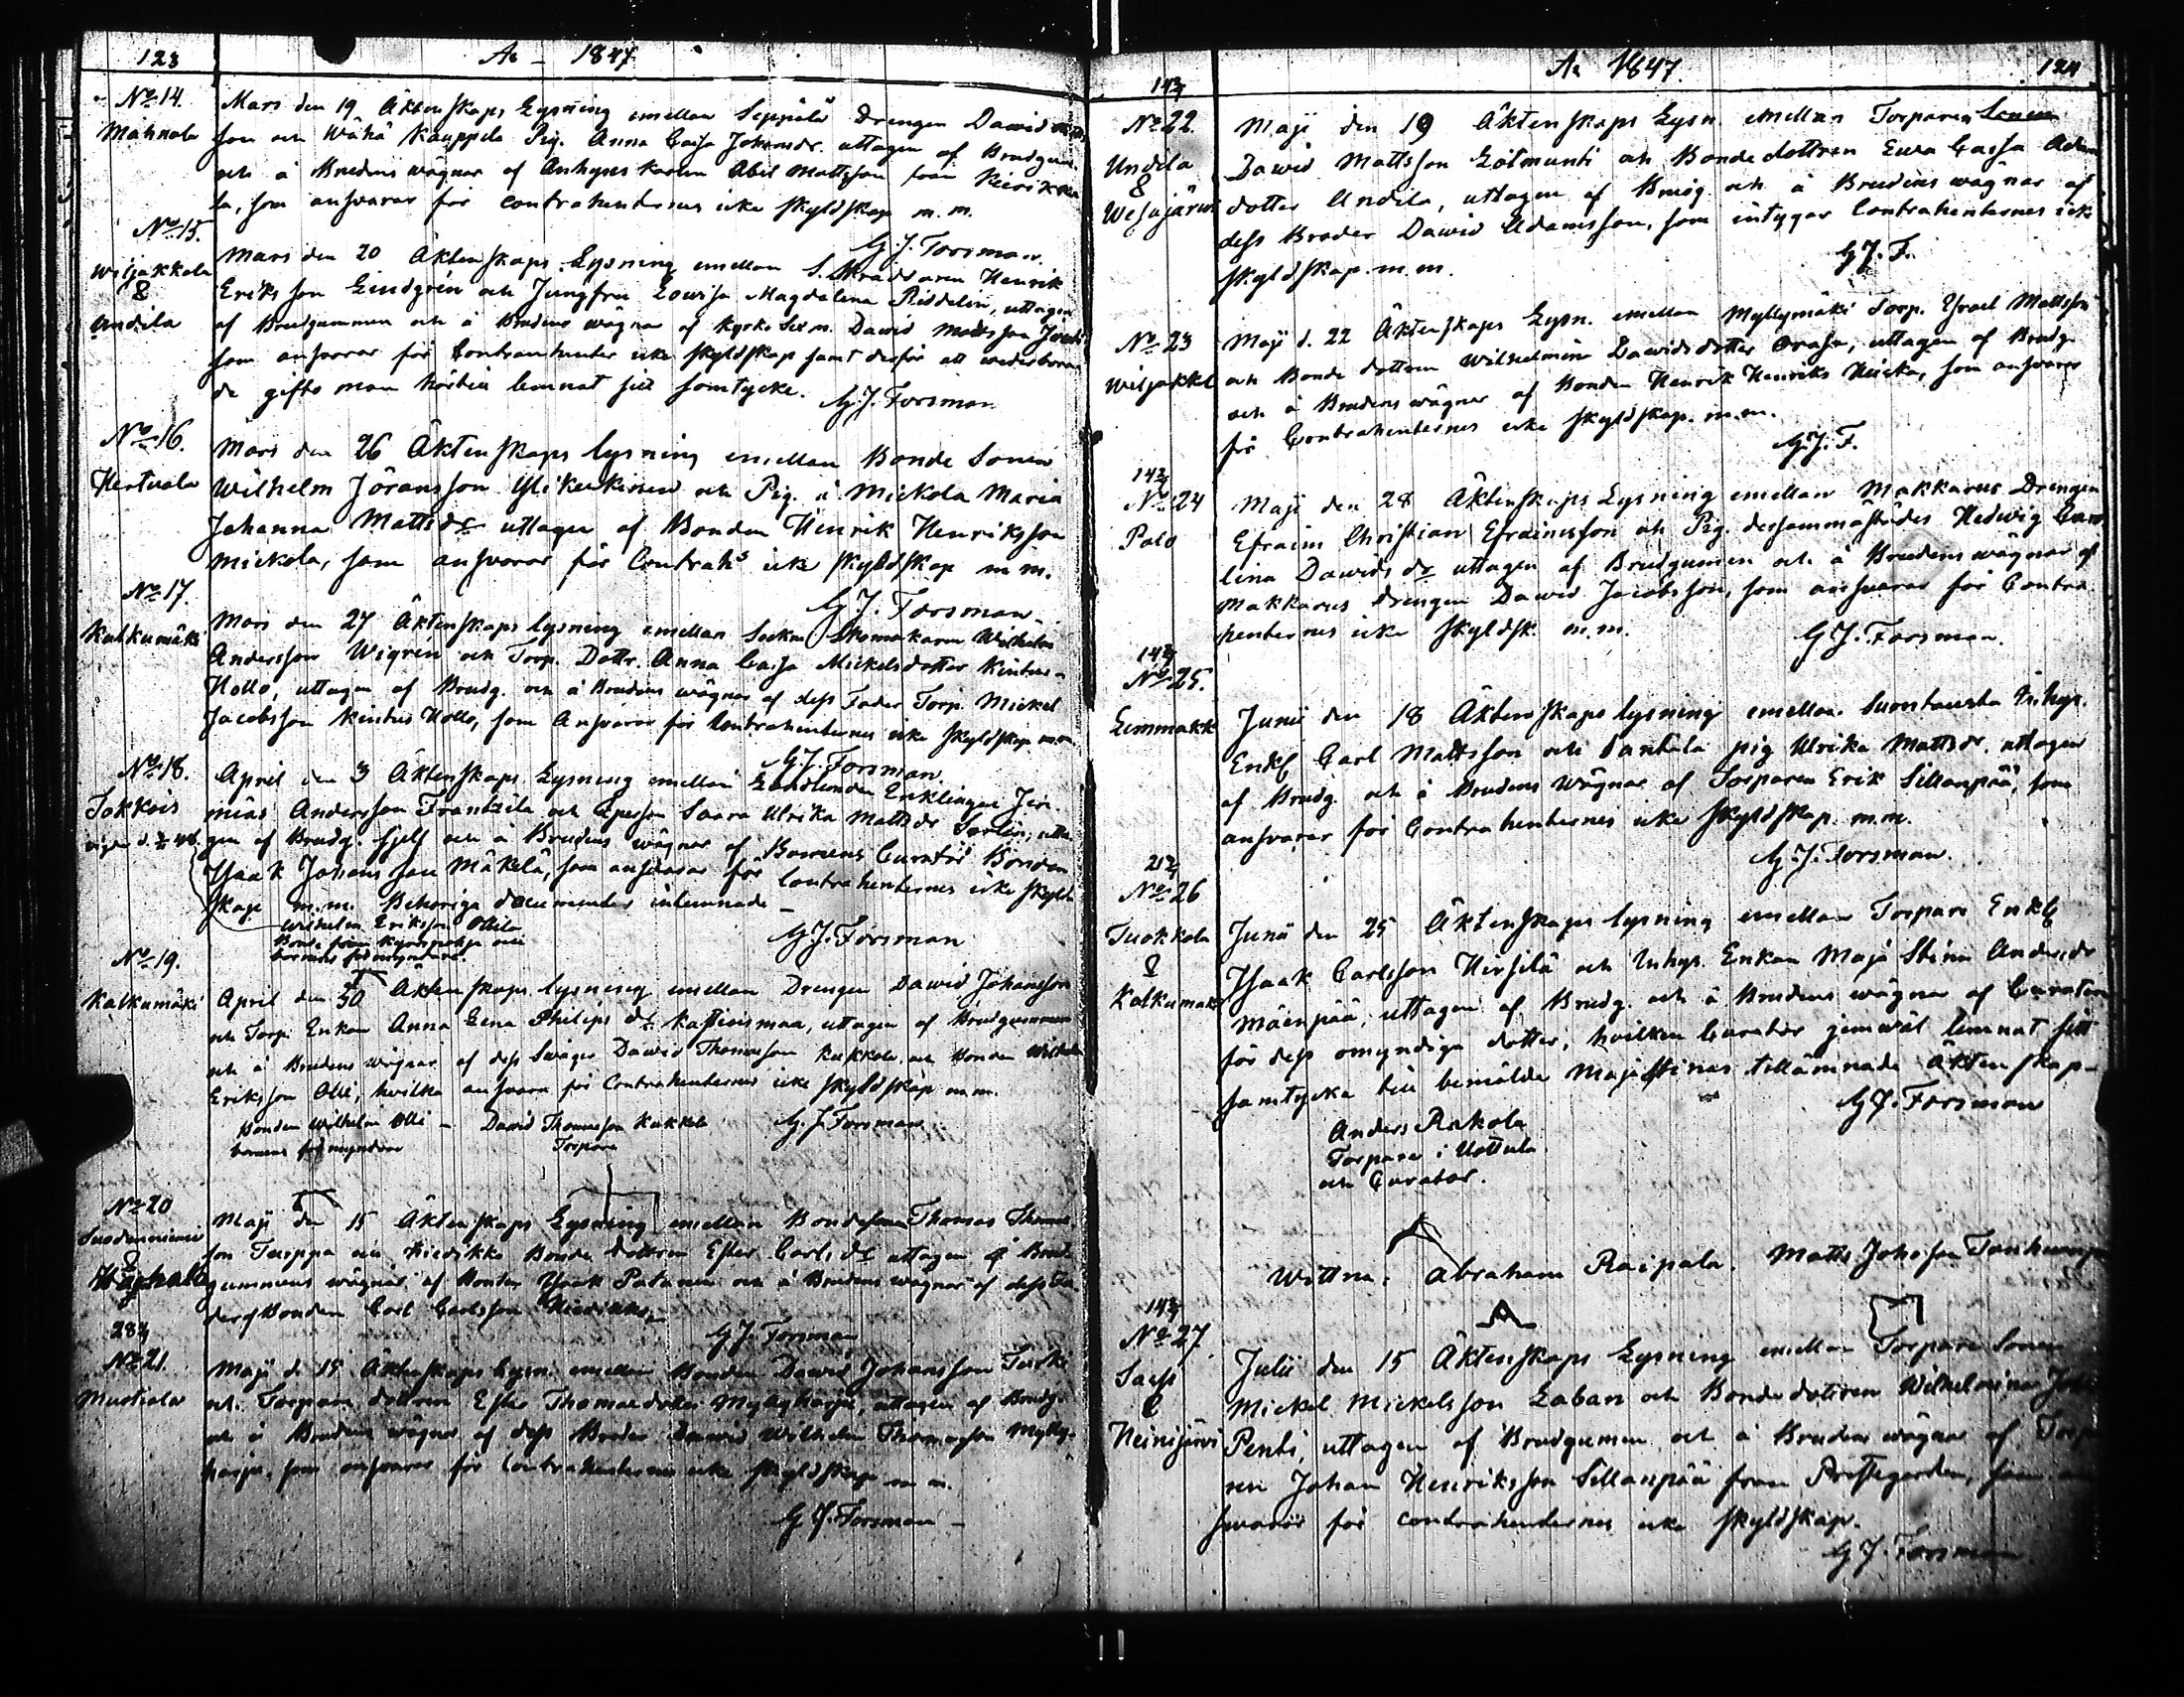 123
Ao - 1847
No 14.
Mahnala
Mars den 19 Äktenskaps Lysning emellan Seppälä Drengen Dawid
son och Wähä Kauppila Pig. Anna Caisa Johansdr. uttagen af Brudgum
och å Brudens wägnar af Enhyses karlen Abel Mattsson från
la, som answarar för contrahenternes icke skyldskap m.m.
G.J. Forsman.
No 15.
Wiljakkala
&
Undila
Mars den 20 Äktenskaps Lysning emellan S. Skräddaren Henrik
Eriksson Lindgrén och Jungfru Lowisa Magdalena Riddelin, uttagen
af Brudgummen och å Brudens wägnar af Kyrko Sexm. Dawid Mattsson
som answarar för Contrahenter icke skyldskap samt derför att wederböran
de giftoman härtill lemnat sitt samtycke.
G.J. Forsman
No 16.
Hertuala
Mars den 26 Äktenskaps lysning emellan Bonde Sonen
Wilhelm Jöransson och Pig. å Mickola Maria
Johanna Mattsdr uttagen af Bonden Henrik Henriksson
Mickola, som answarar för Contrahs icke skyldskap m.m.
G.J. Forsman
No 17.
Kalkumäki
Mars den 27 Äktenskaps lysning emellan Sockne Skomakaren Wilhelm
Andersson Wigrén och Torp. Dottr. Anna Caisa Mickelsdotter Kintus-
Hollo, uttagen af Brudg. och å Brudens wägnar af dess Fader Torp. Mickel
Jacobsson Kintus Hollo, som Answarar för Contrahenternes icke skyldskap m.m.
G.J. Forsman
No 18.
Tokkois
April den 3 Äktenskaps Lysning emellan Enklingen Jere-
mias Andersson Frantzila och Saara Ulrika Mattsdr utta-
gen af Brudg. sjelf och å Brudens wägnar af Barnens Curator Bonden
Isaak Johansson Mäkelä, som answarar för Contrahenternes icke skyld-
skap m.m. Behöriga documenter inlemnade -
Wilhelm Eriksson Ollila
Bonde från
barnens förmyndare.
G.J. Forsman
No 19.
Kalkumäki
April den 30 Äktenskaps lysning emellan Drengen Dawid Johansson
och Torp. Enkan Anna Lena Philipsdr uttagen af Brudgummen
och å Brudens wägnar af dess Swåger Dawid Thomasson Kukkola och Bonden Wilhelm
Eriksson Olli, hwilka answara för Contrahenternes icke skyldskap m.m.
Bonden Wilhelm Olli - Dawid Thomasson Kukkola
barnens förmyndare Torpare
G.J. Forsman
No 20
Suodenniemi
&
Maji den 15 Äktenskaps Lysning emellan Bondesonen Thomas Thomas
son Turppa och Kiedikko Bonde dottren Ester Carlsdr uttagen å Brud-
gummens wägnar af Bonden Isaak Patanen och å Brudens wägnar af dess Fa-
der Bonden Carl Carlsson
G.J. Forsman
28/3
No 21.
Mustiala
Maji d. 15 Äktenskaps Lysn. emellan Bonden Dawid Johansson Turki
och Torpare dottren Ester Thomasdotter Myllyharju, uttagen af Brudg.
och å Brudens wägnar af dess Broder Dawid Wilhelm Thomasson Mylly-
harju, som answarar för Contrahenternes icke skyldskap m.m.
G.J. Forsman -
Ao 1847.
124
14/3
No 22.
Undila
&
Wesajärwi
Maji den 19 Äktenskaps Lysn. emellan Torparen
Dawid Mattsson Lötmunti och Bondedottren Ewa Caisa Adams
dotter Undila, uttagen af Brudg. och å Brudens wägnar af
dess Broder Dawid Adamsson, som intygar Contrahenternes icke
skyldskap m.m.
G.J.F.
No 23
Wiljakkl
Maji d. 22 Äktenskaps Lysn. emellan Myllymäki Torp. Israel Mattsson
och Bonde dottren Wilhelmina Dawidsdotter Orasa, uttagen af Brudg.
och å Brudens wägnar af Bonden Henrik Henriksson som answarar
för Contrahenternes icke skyldskap m.m.
G.J.F.
14/3
No 24
Palo
Maji den 28 Äktenskaps Lysning emellan Makkarus Drengen
Efraim Christian Efraimsson och Pig. dersammastädes Hedwig Caro-
lina Dawidsdr uttagen af Brudgumen och å Brudens wägnar af
Makkarus drengen Dawid Jacobsson, som answarar för Contra-
henternes icke skyldsk. m.m.
G.J. Forsman.
14/3
No 25.
Limmakk
Junii den 18 Äktenskaps lysning emellan Inhys.
Enkl. Carl Mattsson och pig Ulrika Mattsdr. uttagen
af Brudg. och å Brudens wägnar af Torparen Erik Sillanpää, som
answarar för Contrahenternes icke skyldskap m.m.
G.J. Forsman.
21/3
No 26
Tuokkola
&
Kalkumäki
Junii den 25 Äktenskaps lysning emellan Torpare Enkl.
Isaak Carlsson Hirsilä och Inhys. Enkan Maja Stina Andersdr
Mäenpää, uttagen af Brudg. och å Brudens wägnar af Curatorn
för dess omyndiga dotter, hwilken Curator jemwäl lemnat sitt
samtycke till bemälde Maja Stinas tillämnade Äktenskap -
G.J. Forsman
Anders Rakola
Torpare i Uottula
och Curator.
Wittna: Abraham Raipala. Matts Johasson
14/3
No 27
Sass
&
Heinijärwi
Julii den 15 Äktenskaps Lysning emellan Torpare Sonen
Mickel Mickelsson Laban och Bondedottren Wilhelmina
Penti, uttagen af Brudgumen och å Brudens wägnar af Torpa
ren Johan Henriksson Sillanpää från Prestegården, som an
swarar för contrahenternes icke skyldskap.
G.J. Forsman